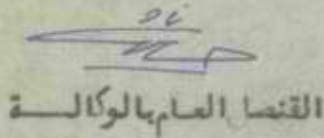 القنصل العام بالوكالـــة